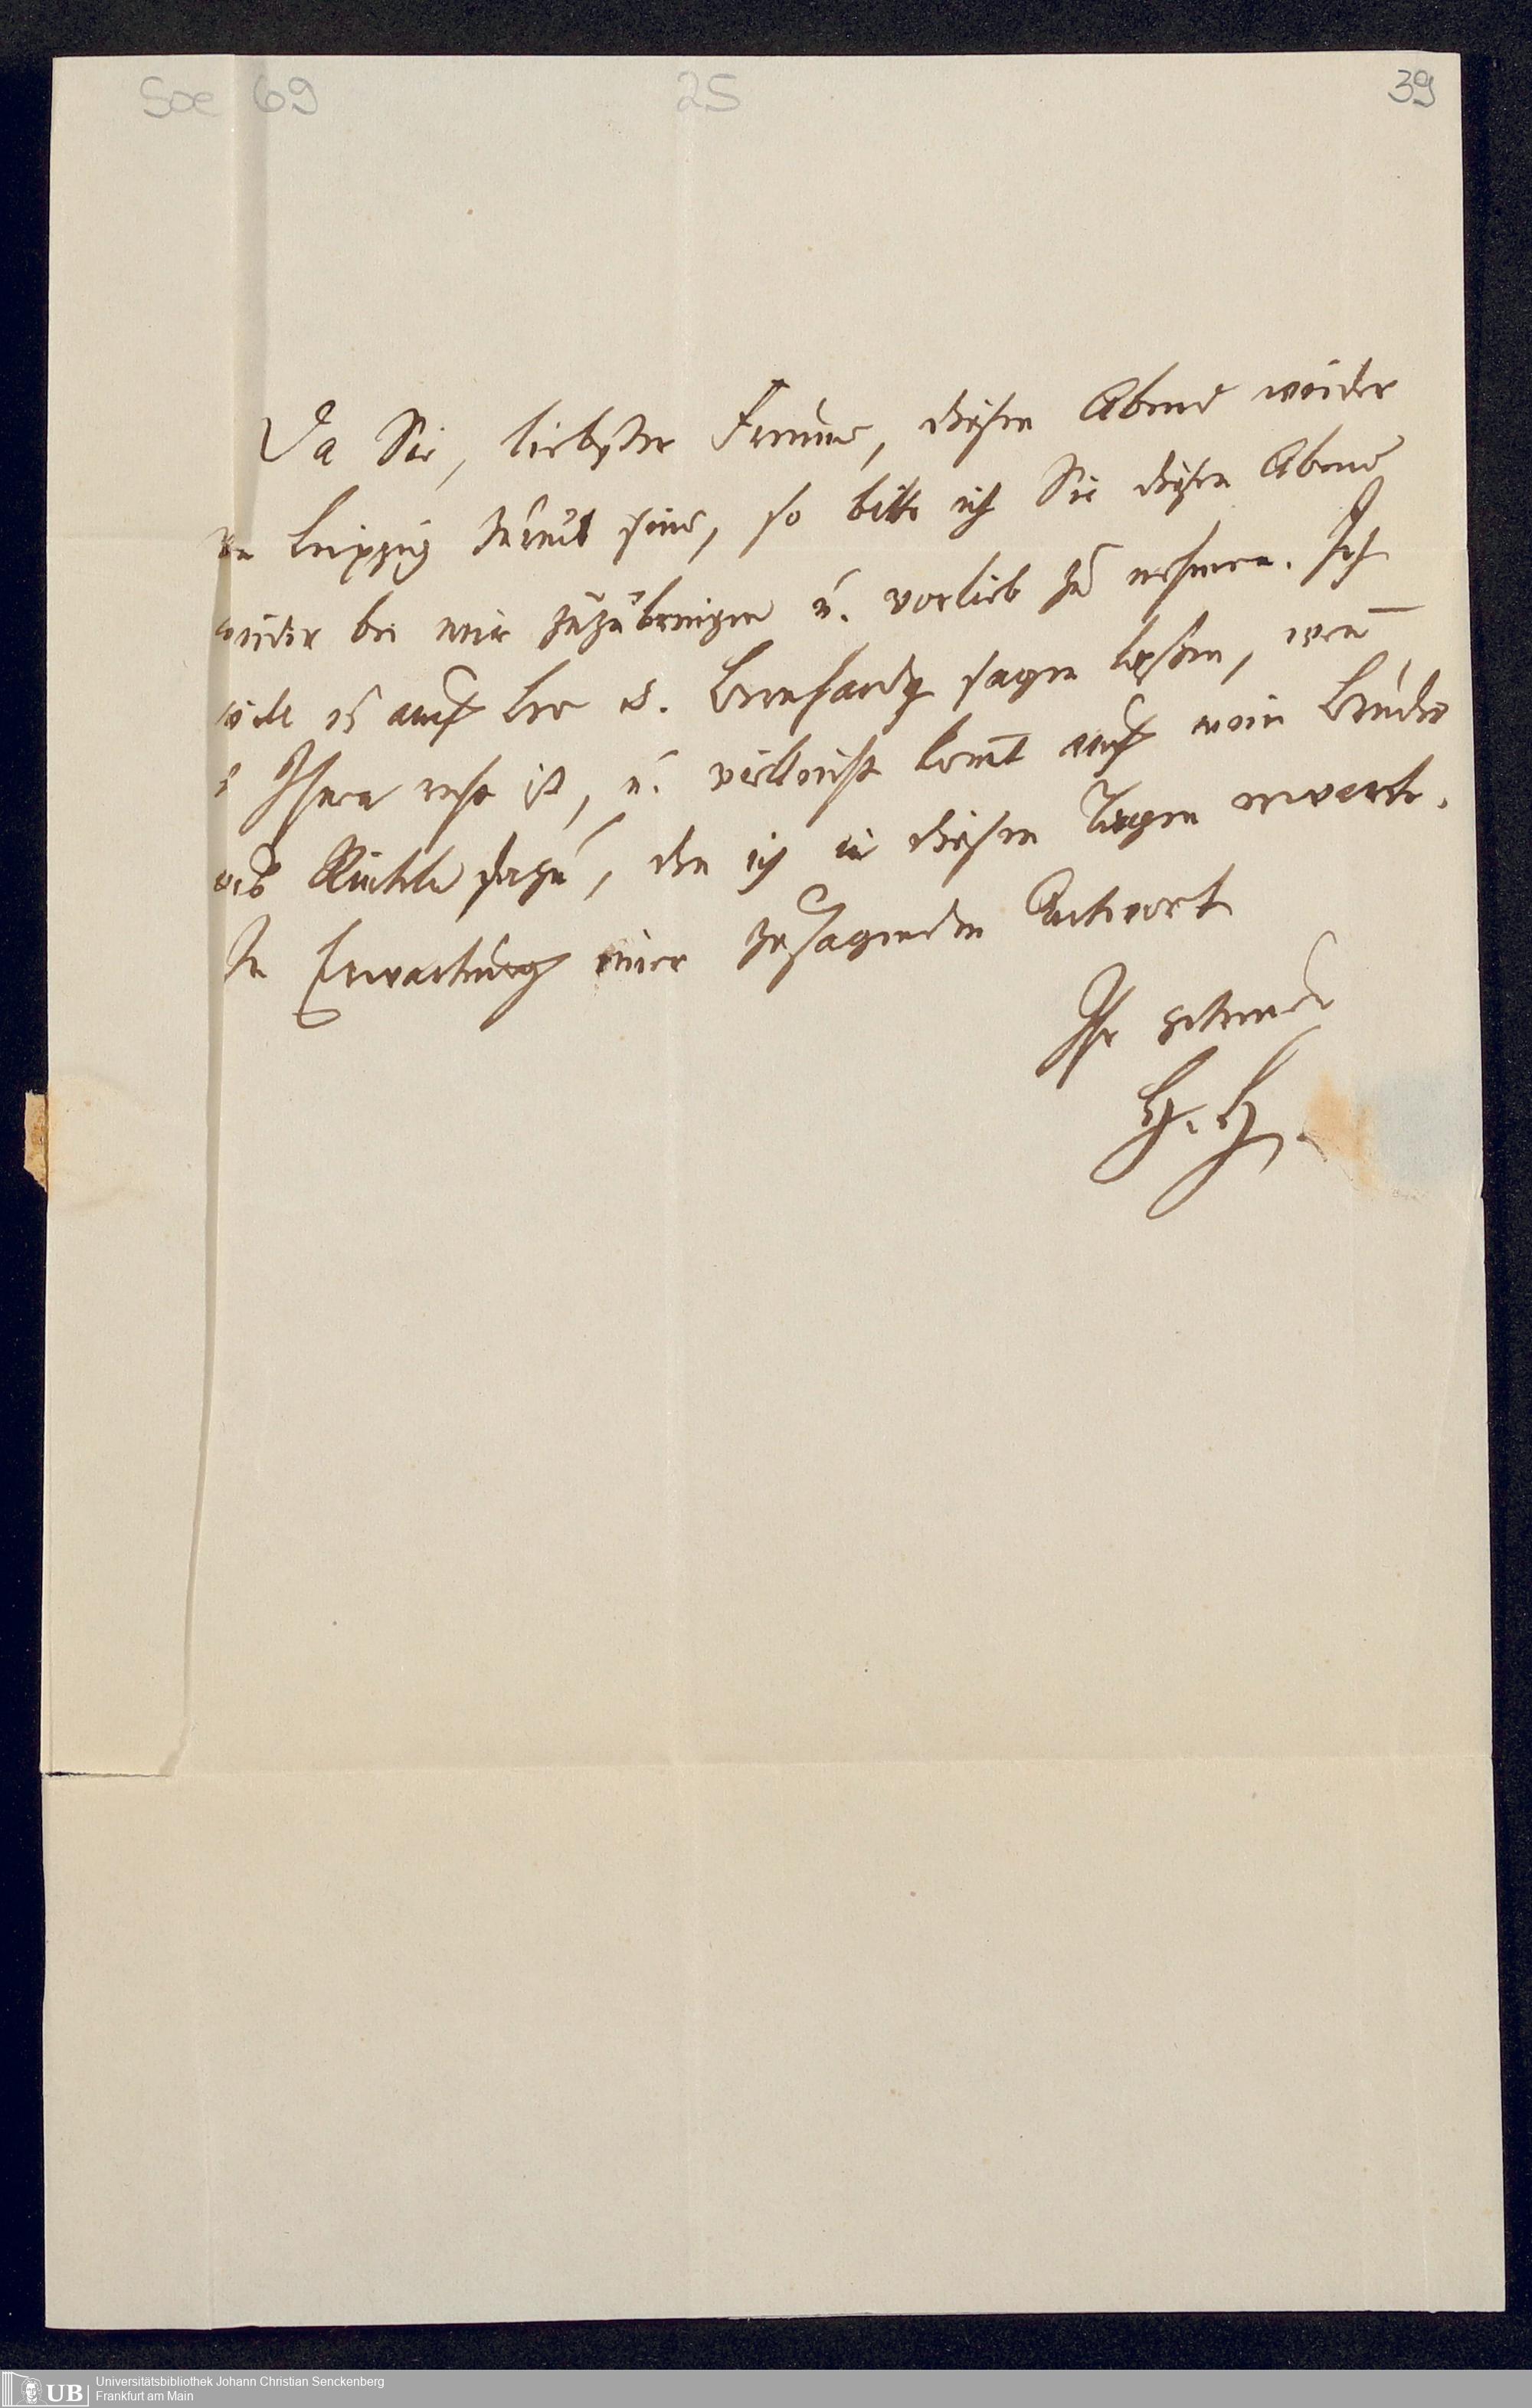 Soe 69 25 39
Da Sie, liebster Freund, diesen Abend wieder
in Leipzig zurück sind, so bitte ich Sie diesen Abend
wieder bei mir zuzubringen u. vorlieb zu nehmen. Ich
will es auch Leo u. Bernhardy sagen lassen, wen̄
s Ihnen recht ist, u. vielleicht kom̄t auch mein Bruder
aus dazu, den ich in diesen Tagen erwarte.
In Erwartung einer zusagenden Antwort
Ihr getreuer
H. H.
UB Universitätsbibliothek Johann Christian Senckenberg
Frankfurt am Main